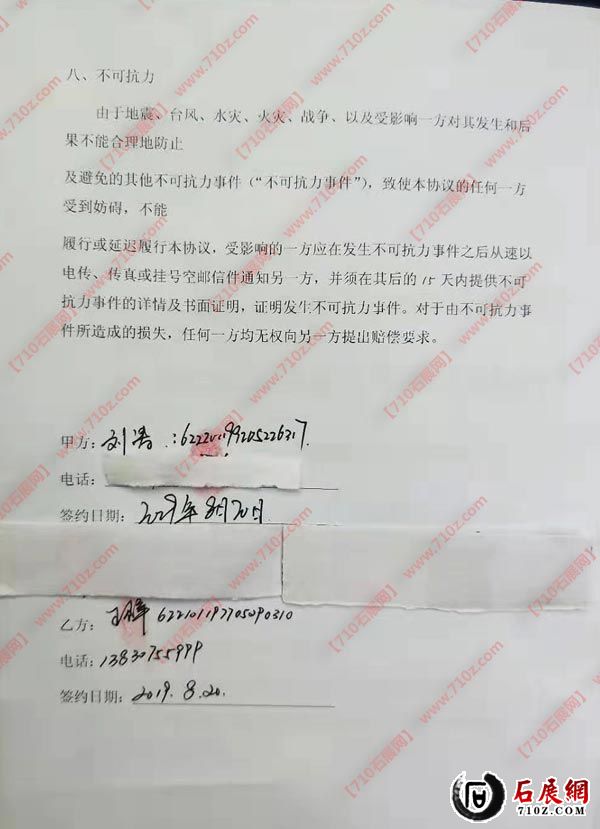 【710石展网】 www.710z.com
八、不可抗力
由于地震、台风、水灾、火灾、战争、以及受影响一方对其发生和后
果不能合理地防止
及避免的其他不可抗力事件（“不可抗力事件”），致使本协议的任何一方
受到妨碍，不能
履行或延迟履行本协议，受影响的一方应在发生不可抗力事件之后从速以
电传、传真或挂号空邮信件通知另一方，并须在其后的 15 天内提供不可
抗力事件的详情及书面证明，证明发生不可抗力事件。对于由不可抗力事
件所造成的损失，任何一方均无权向另一方提出赔偿要求。
甲方：刘涛
电话：
签约日期：2019年8月20日
乙方： 622101197705090310
电话：13830755999
签约日期：2019.8.20.
石展網
710Z.COM